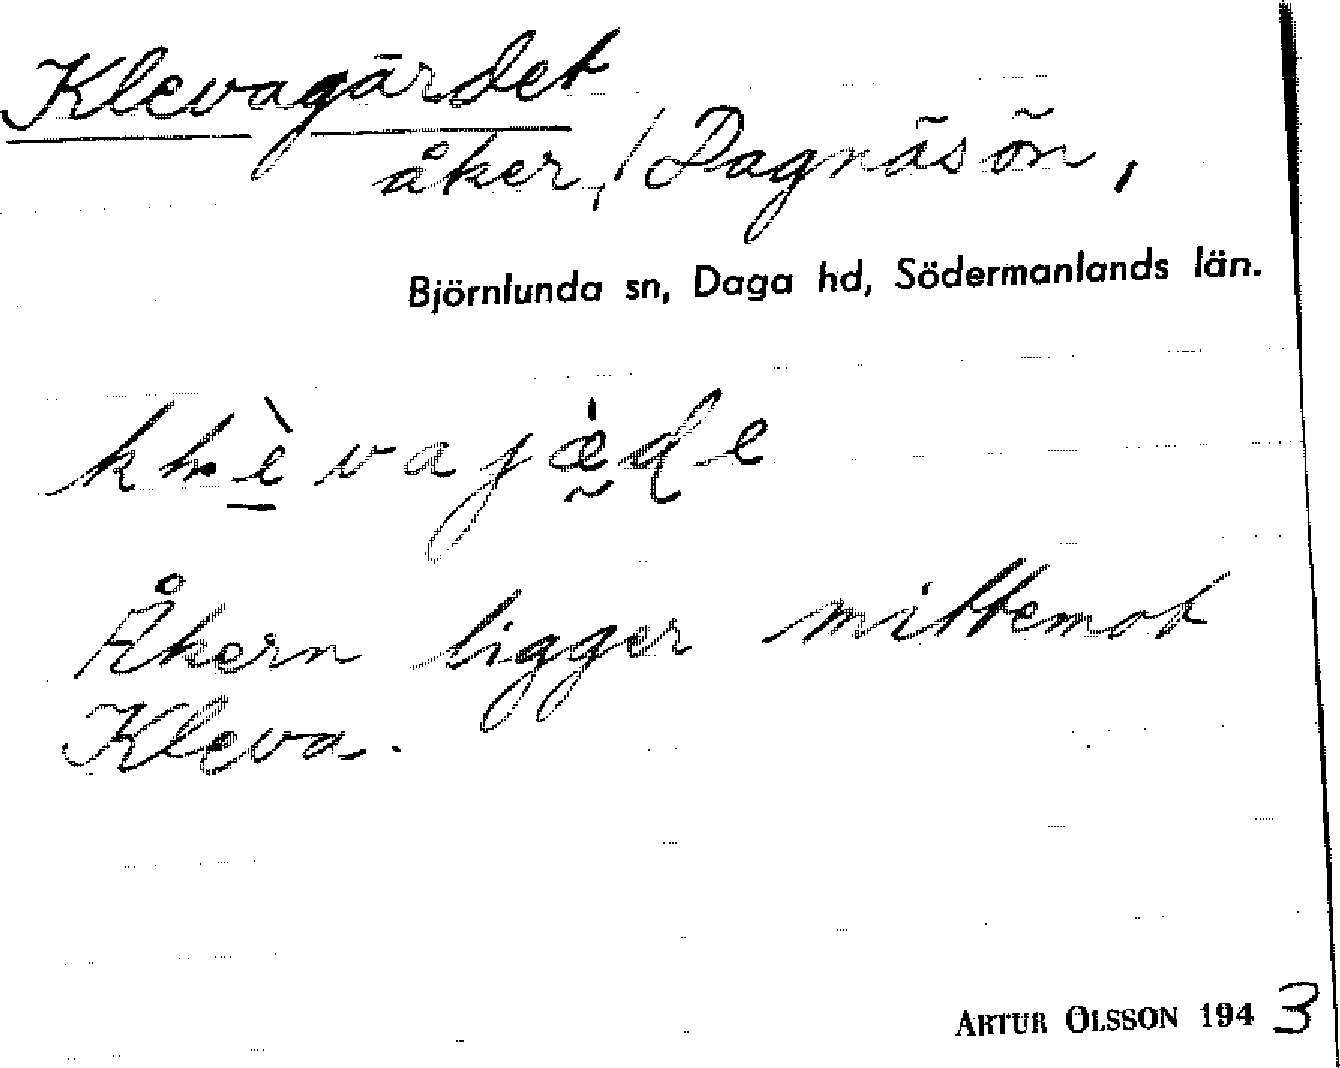 Klevagärdet
åker, / Dagnäsön,
Björnlunda sn, Daga hd, Södermanlands län.
Åkern ligger mittemot
Kleva.
ARTUR OLSSON 1943